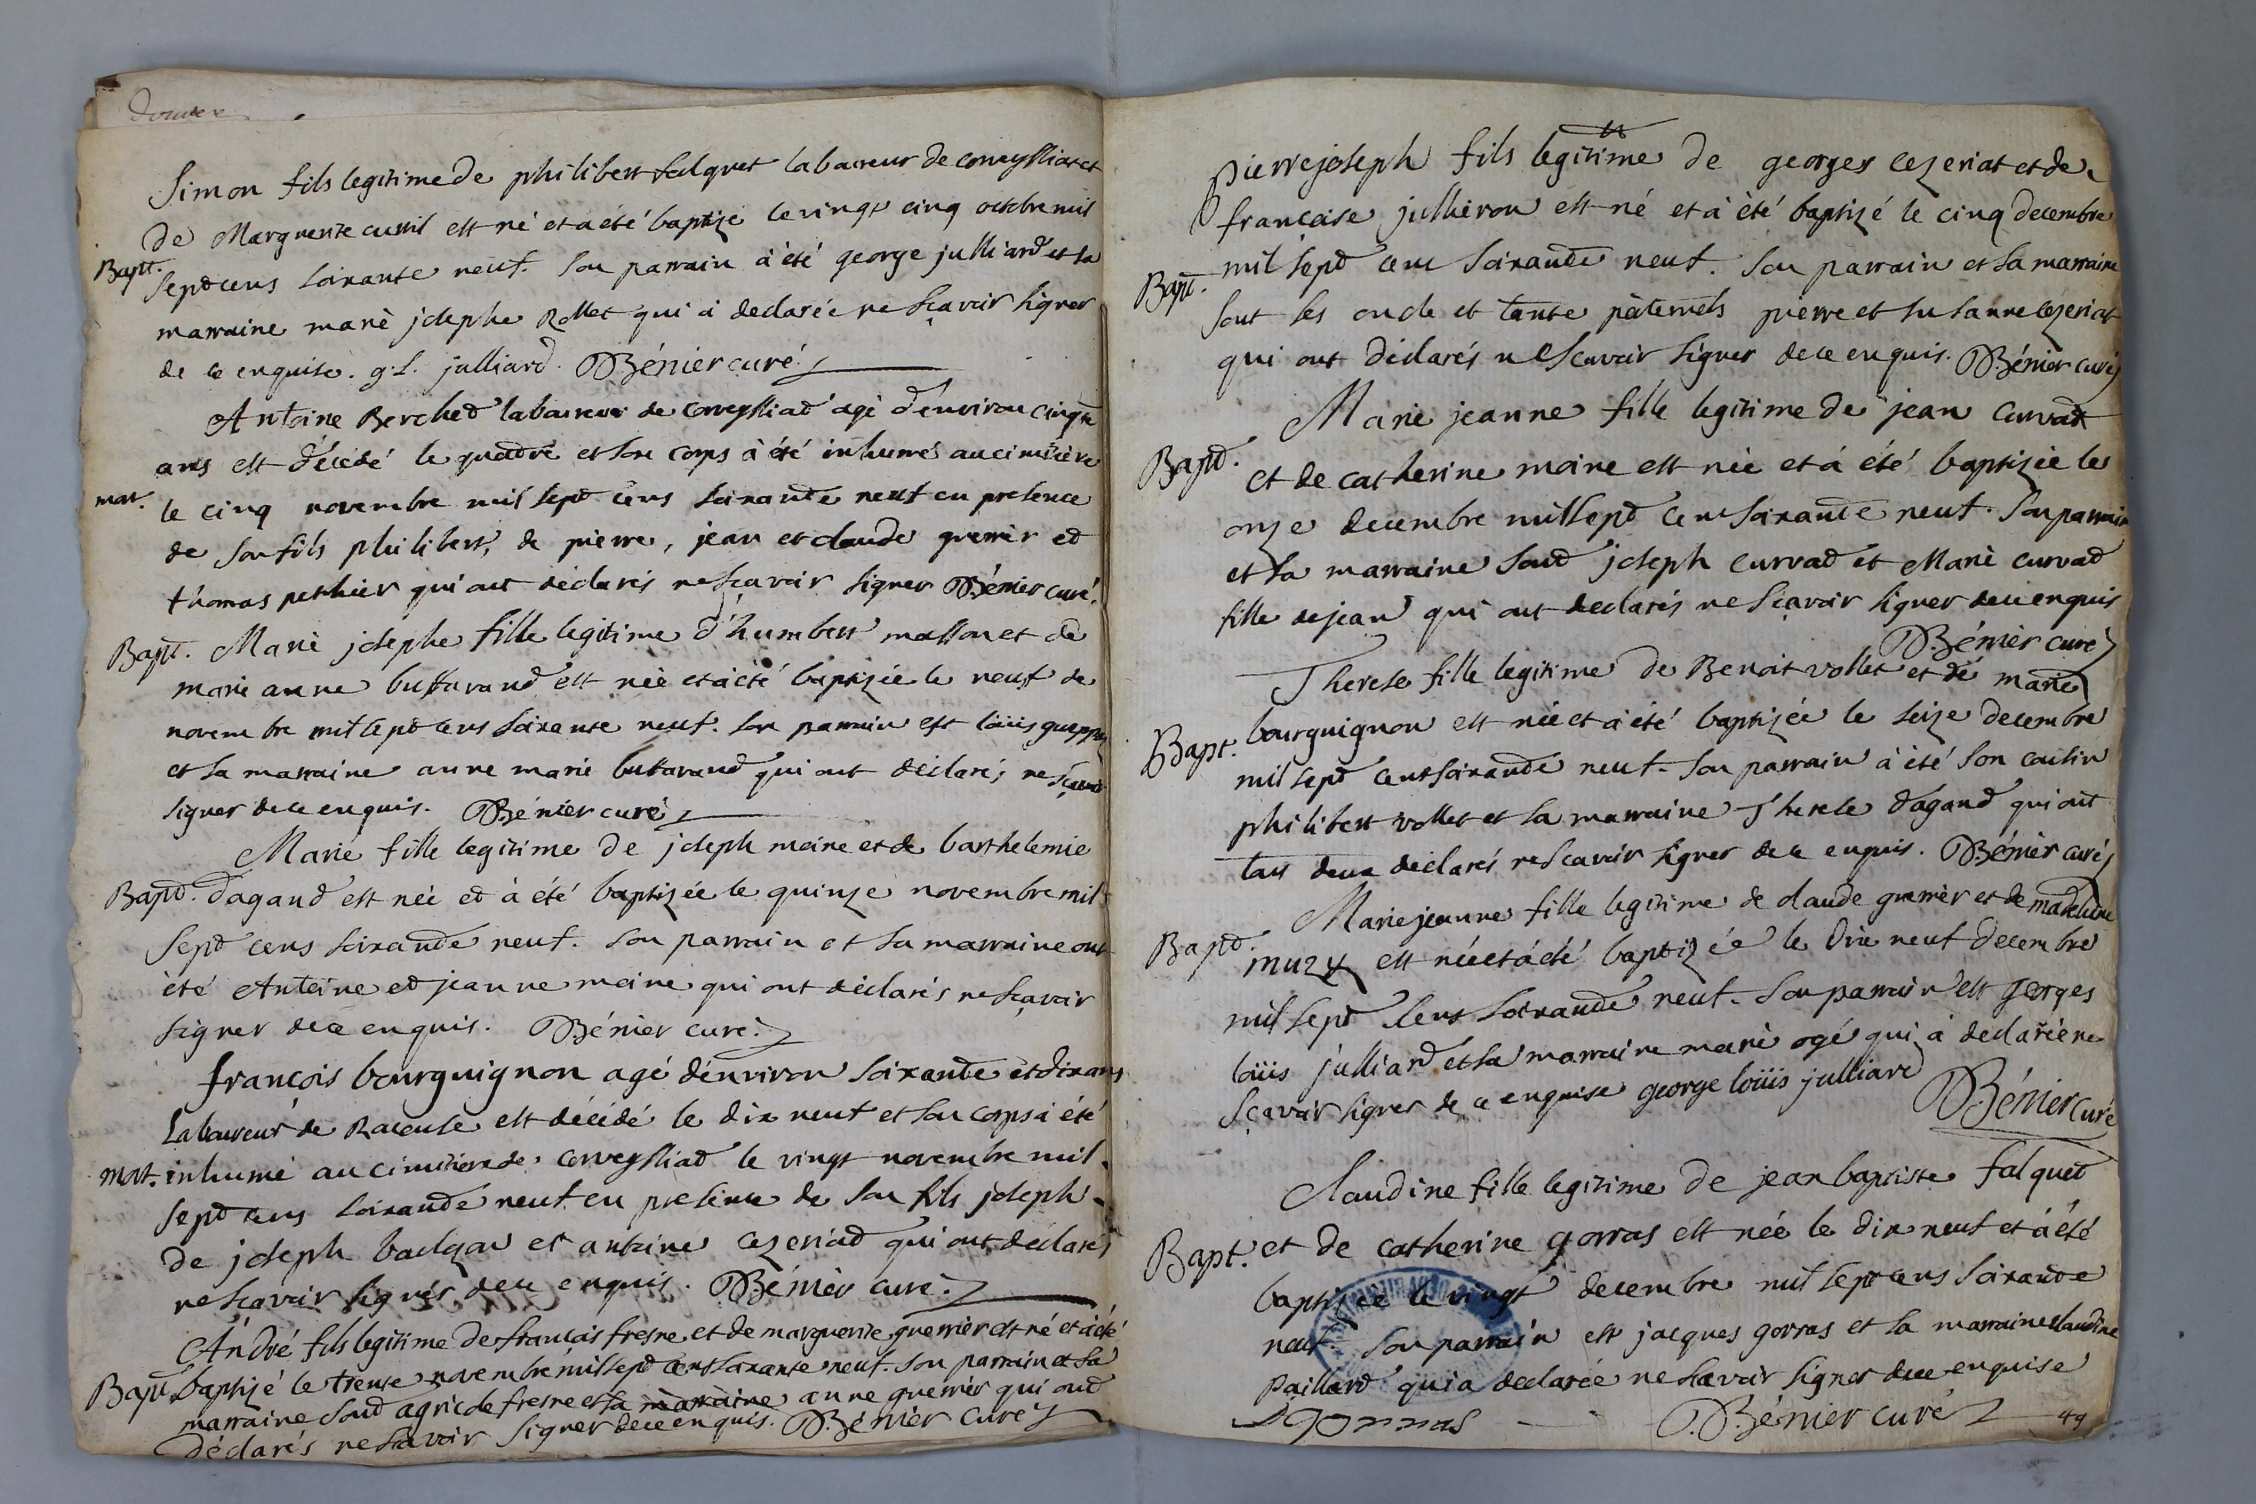 Simon fils legitime de philibert falquet laboureur de corveyssiat et
de Marguerite curvil est né et a été baptizé le vingt cinq octobre mil
Bapt.
sept cens soixante neuf. son parrain à été george julliard et sa
marraine marie josephe Rollet qui a declarée ne sçavoir signer
de ce enquise. g. L. julliard. Bénier curé
Antoine Berched laboureur de corveyssiad agé d'environ cinqte
ans est décédé le quatre et son corps à été inhumé au cimitière
mort.
le cinq novembre mil sept cens soixante neuf en presence
de son fils philibert, de pierre, jean et claude guerrier et
thomas perrhier qui ont declarés ne sçavoir signer Bénier curé.
Bapt. Marie josephe fille legitime d'humbert masson et de
marie anne buttavand est née et a été baptizée le neuf de
novembre mil sept cens soixante neuf. son parrain est loüis
et sa marraine anne marie buttavand qui ont declarés ne sçavoir
signer de ce enquis. Bénier curé
Marie fille legitime de joseph moine et de barthelemie
Bapt. dagand est née et à été baptizée le quinze novembre mil
sept cens soixante neuf. son parrain et sa marraine ont
été Antoine et jeanne moine qui ont déclarés ne sçavoir
signer de ce enquis. Bénier curé.
françois bourguignon agé d'environ soixante et dix ans
Laboureur de Racouse est décédé le dix neuf et son corps à été
mort. inhumé au cimitiere de corveyssiad le vingt novembre mil
sept cens soixante neuf en presence de son fils joseph
de joseph et antoine cezeriad qui ont déclarés
ne sçavoir signer de ce enquis. Bénier curé.
André fils legitime de françois fresne et de marguerite guerrier est né et à été
Bapt. baptizé le trente novembre mil sept cens soixante neuf. son parrain et sa
marraine sont agricole fresne et sa marraine anne guerrier qui ont
déclarés ne scavoir signer de ce enquis. Bénier curé
pierre joseph fils legitime de georges cezeriat et de
françoise jullieron est né et à été baptizé le cinq decembre
Bapt. mil sept cens soixante neuf. son parrain et sa marraine
sont ses oncle et tante paternels pierre et susanne cezeriat
qui ont déclarés ne scavoir signer de ce enquis. Bénier curé
Marie jeanne fille legitime de jean curvat
Bapt. et de catherine moine est née et á été baptizée les
onze decembre mil sept cens soixante neuf. son parrain
et sa marraine sont joseph curvad et Marie curvad
fille de jean qui ont declarés ne sçavoir signer de ce enquis
Bénier curé
Therese fille legitime de Benoit vollet et de marie
Bapt. bourguignon est née et à été baptizée le seize decembre
mil sept cent soixante neuf. son parrain à été son cousin
philibert vollet et sa marraine Therese dagand qui ont
tous deux déclarés ne scavoir signer de ce enquis. Bénier curé
Marie jeanne fille legitime de claude guerrier et de madelaine
Bapt. muzy est née et á été baptizée le dix neuf decembre
mil sept cens soixante neuf. son parrain est georges
loüis julliard et sa marraine marie ogé qui à declarée ne
sçavoir signer de ce enquise george loüis julliard
Bénier curé
Claudine fille legitime de jean baptiste falquet
Bapt. et de catherine gorras est née le dix neuf et à été
baptizée le vingt decembre mil sept cens soixante
neuf. son parrain est jacques gorras et sa marraine claudine
paillard qui a declarée ne scavoir signer de ce enquise
Bénier curé